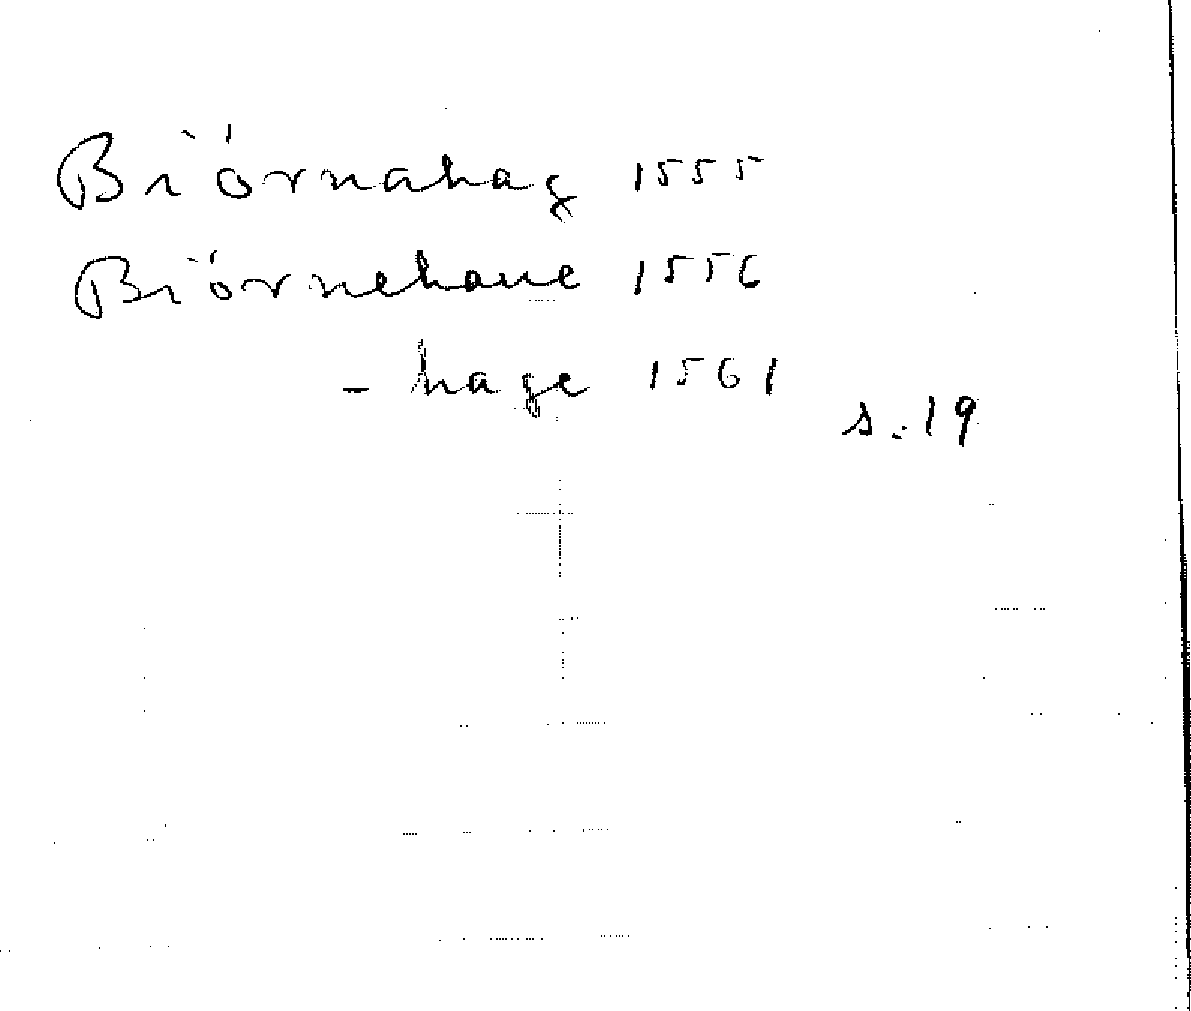 Biörnahag 1555
Biörnehaue 1556
- hage 1561
s. 19